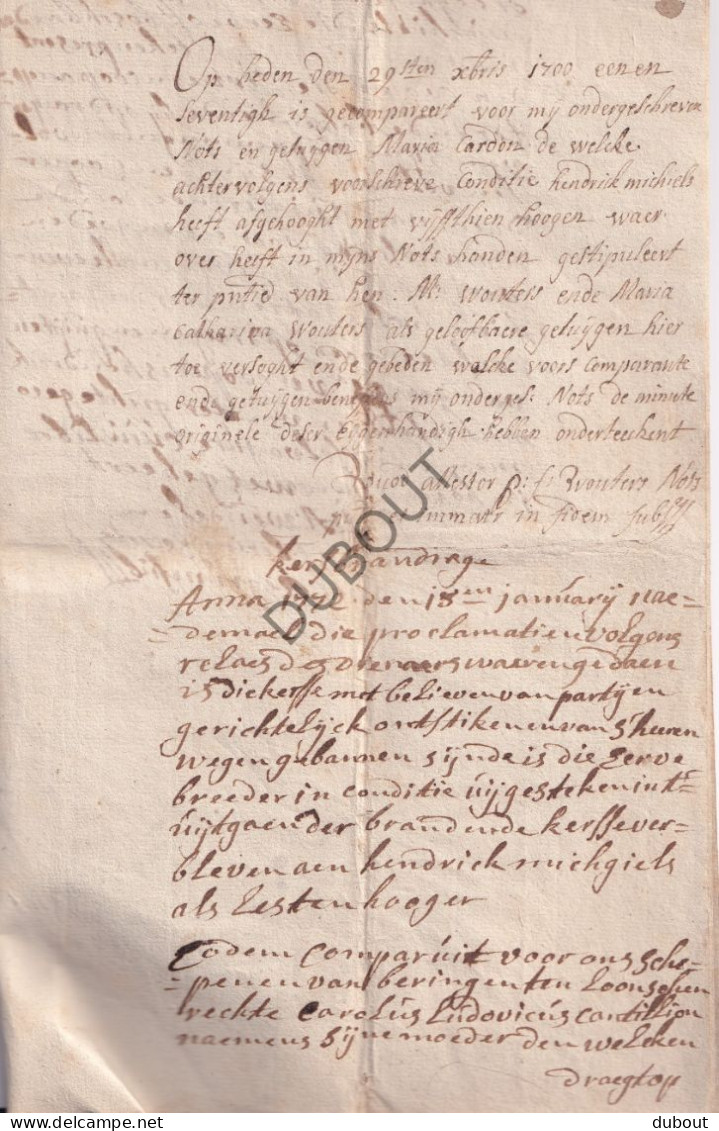 Op heden den 29sten xbris 1700 eenen
seventigh is gecompareert voor mij ondergeschreven
Nots en getuygen Maria Cardon de welcke
achtervolgens voorschreve Conditie hendrik michiels
heeft afgehooght met vijffthien hoogen waer
over heeft in mijns Nots handen gestipuleert
ter pntie van hen: M: Wouters ende Maria
Catharina Wouters als geloofbaere getuygen hier
toe versoght ende gebeden welcke voors comparante
ende getuygen beneffens mij onderges: Nots de minute
originele deser eygenhandigh hebben onderteeckent
Quod attestor p: f: Wouters Nots
in fidem subss
kers brandrage
Anna 1772 den 18en january nae=
=demael die proclamatien volgens
relaes des dienaers waeren gedaen
is die kersse met believen van partijen
gerichtelijck ontstiken en van s'heeren
wegen gebannen sijnde is die erve
breeder in conditie uijgesteken int=
uijtgaen der brandende kersse ver=
bleven aen hendrick michgiels
als lesten hooger
Eodem Comparuit voor ons sche=
=penen van beringen ten loonschen
rechte Carolus Ludovicus Cantillion
naemens sijne moeder den welcken
draegt op
DUBOUT
delcampe.net
dubout